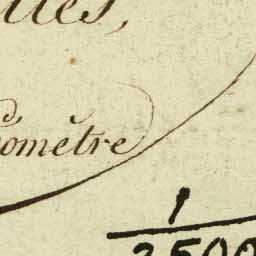 lles,
éomètre
1
2500